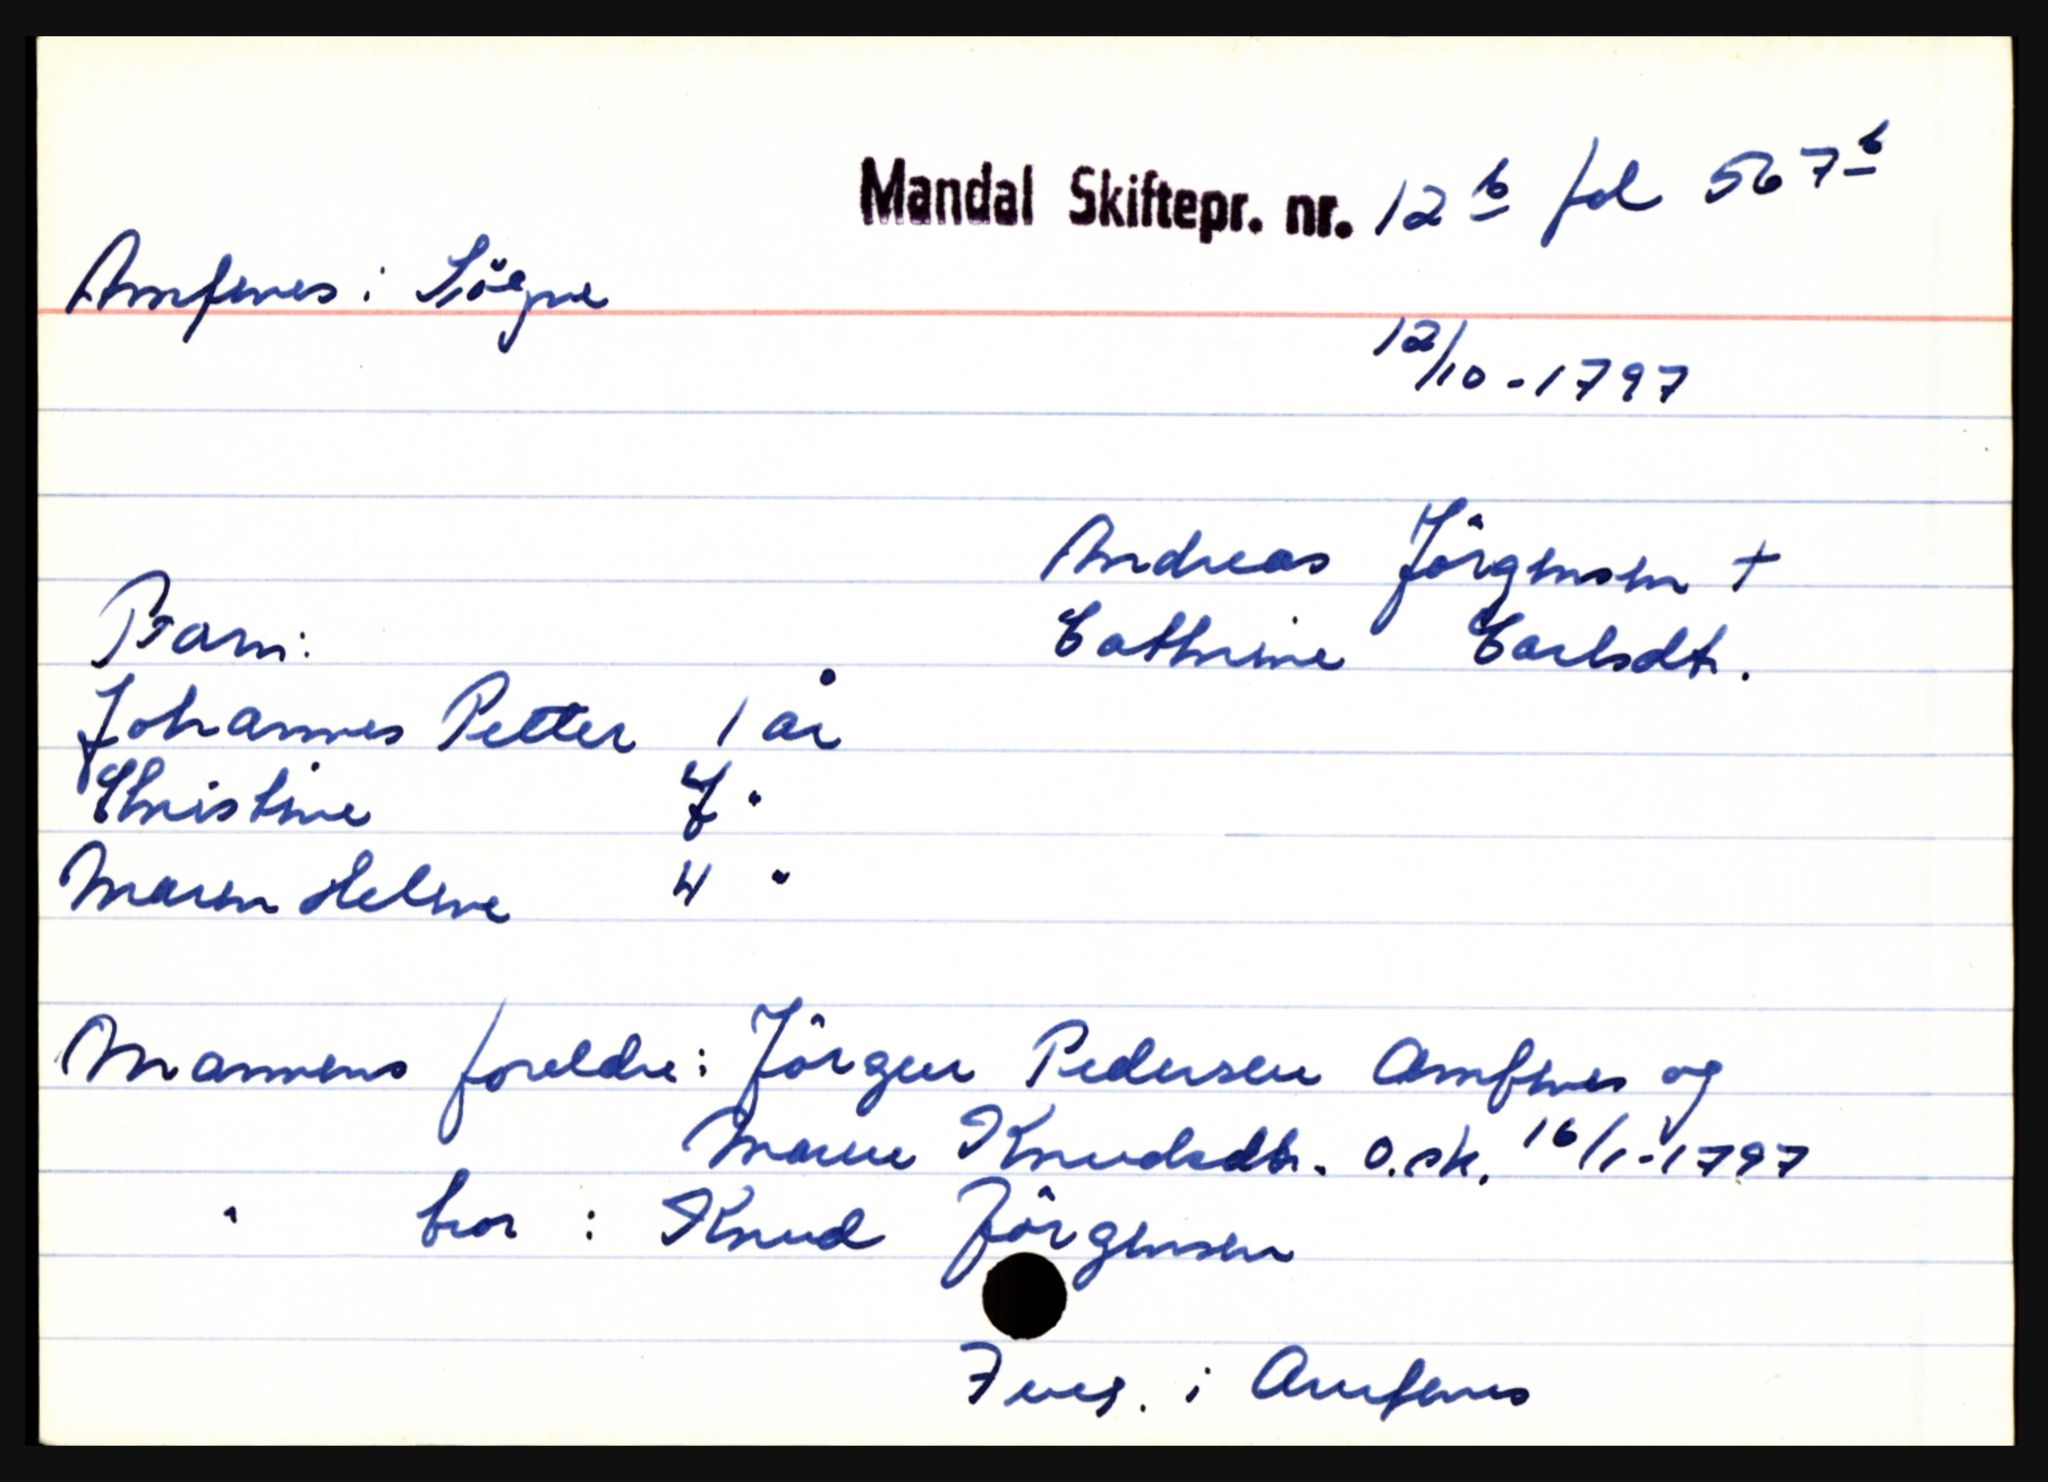 Mandal Skiftepr. nr. 12 b fol 567 b
Amfenes i Sögne
12/10 - 1797
Andreas Jörgensen +
Cathrine Carlsdt.
Barn:
Johannes Petter 1 år
Christine 7 "
Maren Helene 4 "
Mannens foreldre: Jörgen Pedersen Amfenes og
Maren Knudsdtr. o.sk. 16/1-1797
" bror : Knud Jörgensen
i Amfenes